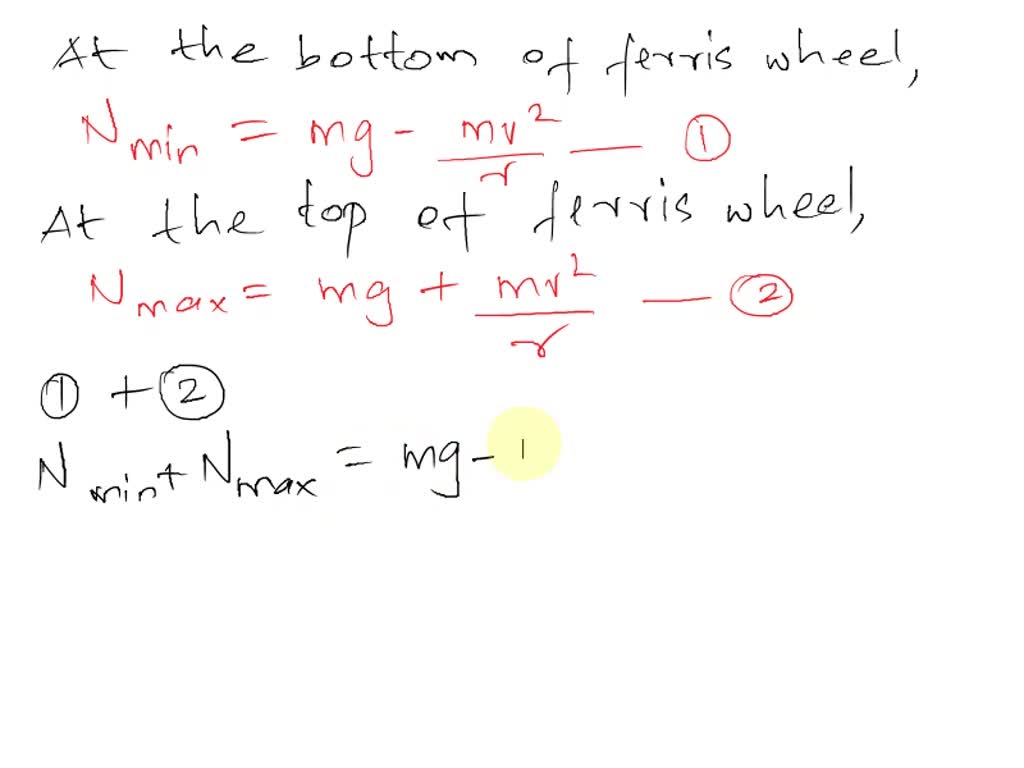 At the bottom of ferris wheel,
N min = mg - mv²/r — ①
At the top of ferris wheel,
N max = mg + mv²/r — ②
① + ②
N min + N max = mg - l